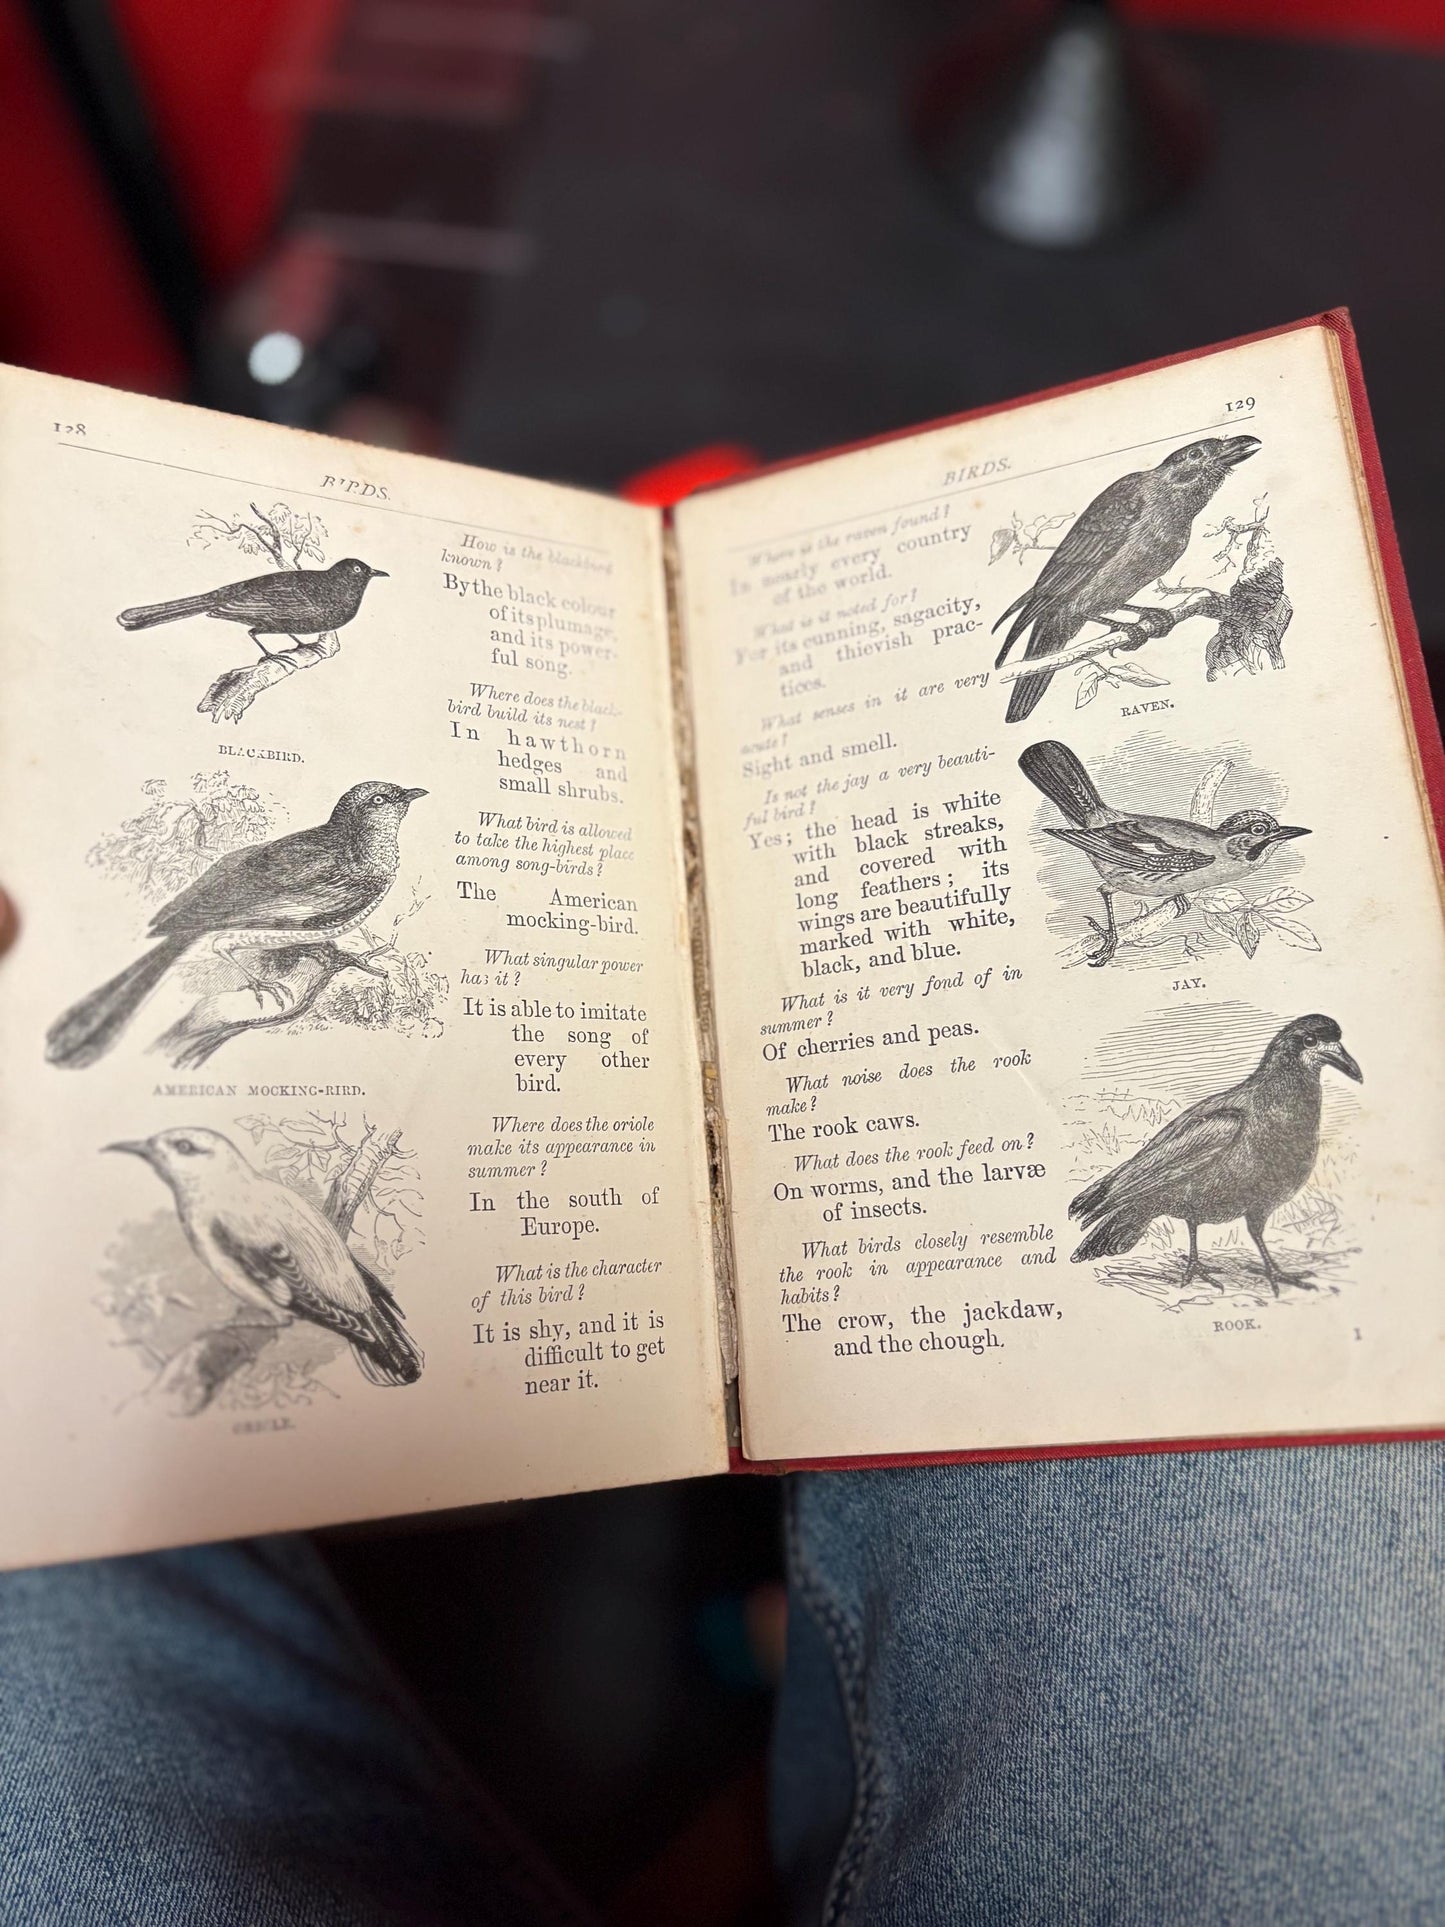 128
BIRDS.
How is the blackbird
known?
By the black colour
of its plumage,
and its power-
ful song.
Where does the black-
bird build its nest?
In hawthorn
hedges and
small shrubs.
What bird is allowed
to take the highest place
among song-birds?
The American
mocking-bird.
What singular power
has it?
It is able to imitate
the song of
every other
bird.
Where does the oriole
make its appearance in
summer?
In the south of
Europe.
What is the character
of this bird?
It is shy, and it is
difficult to get
near it.
BLACKBIRD.
AMERICAN MOCKING-BIRD.
ORIOLE.
129
BIRDS.
Where is the raven found?
In nearly every country
of the world.
What is it noted for?
For its cunning, sagacity,
and thievish prac-
tices.
What senses in it are very
acute?
Sight and smell.
Is not the jay a very beauti-
ful bird?
Yes; the head is white
with black streaks,
and covered with
long feathers; its
wings are beautifully
marked with white,
black, and blue.
What is it very fond of in
summer?
Of cherries and peas.
What noise does the rook
make?
The rook caws.
What does the rook feed on?
On worms, and the larvæ
of insects.
What birds closely resemble
the rook in appearance and
habits?
The crow, the jackdaw,
and the chough.
RAVEN.
JAY.
ROOK.
I